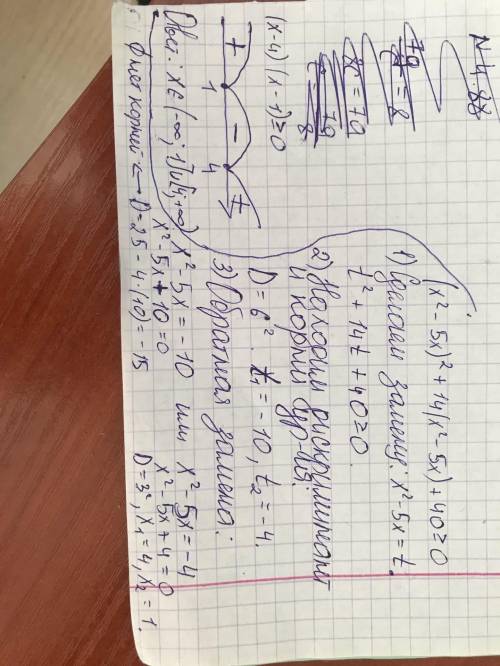 N 4.88
(x²-5x)²+14(x²-5x)+40≥0
1) Сделаем замену: x²-5x=t.
t²+14t+40≥0.
2) Находим дискриминант
и корни ур-ия:
D=6². t₁=-10, t₂=-4.
3) Обратная замена:
x²-5x=-10 или x²-5x=-4
x²-5x+10=0 x²-5x+4=0
D=25-4·(10)=-15 D=3², x₁=4, x₂=1.
(x-4)(x-1)≥0
+ - +
1 4
Ответ: x∈(-∞;1]∪[4;+∞)